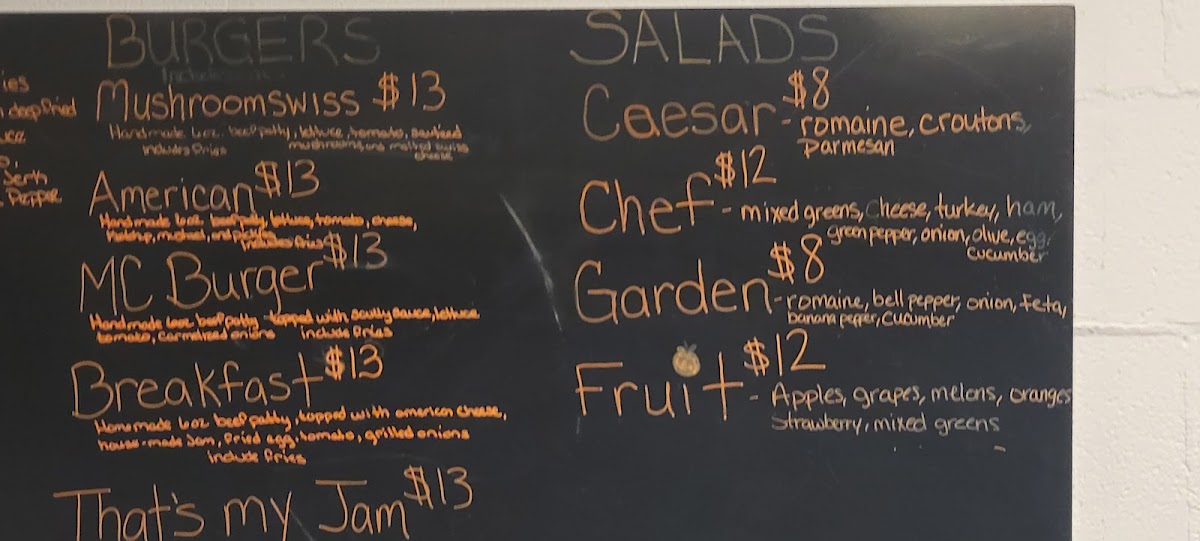 ies
deep fried
BURGERS
Mushroom swiss $13
Handmade 6oz. beef patty, lettuce, tomato, sauteed
includes fries mushrooms, and melted swiss
cheese
American $13
Handmade 6oz beef patty, lettuce, tomato, cheese,
Ketchup, mustard, and pickles
includes fries
MC Burger $13
Handmade 6oz beef patty - topped with sauce, lettuce
tomato, carmelized onions include fries
Breakfast $13
Homemade 6oz beef patty, topped with american cheese,
house-made jam, fried egg, tomato, grilled onions
include fries
That's my Jam $13
SALADS
Caesar $8
- romaine, croutons,
parmesan
Chef $12
- mixed greens, cheese, turkey, ham,
green pepper, onion, olive, egg,
cucumber
Garden $8
- romaine, bell pepper, onion, feta,
banana pepper, cucumber
Fruit $12
- Apples, grapes, melons, oranges
Strawberry, mixed greens